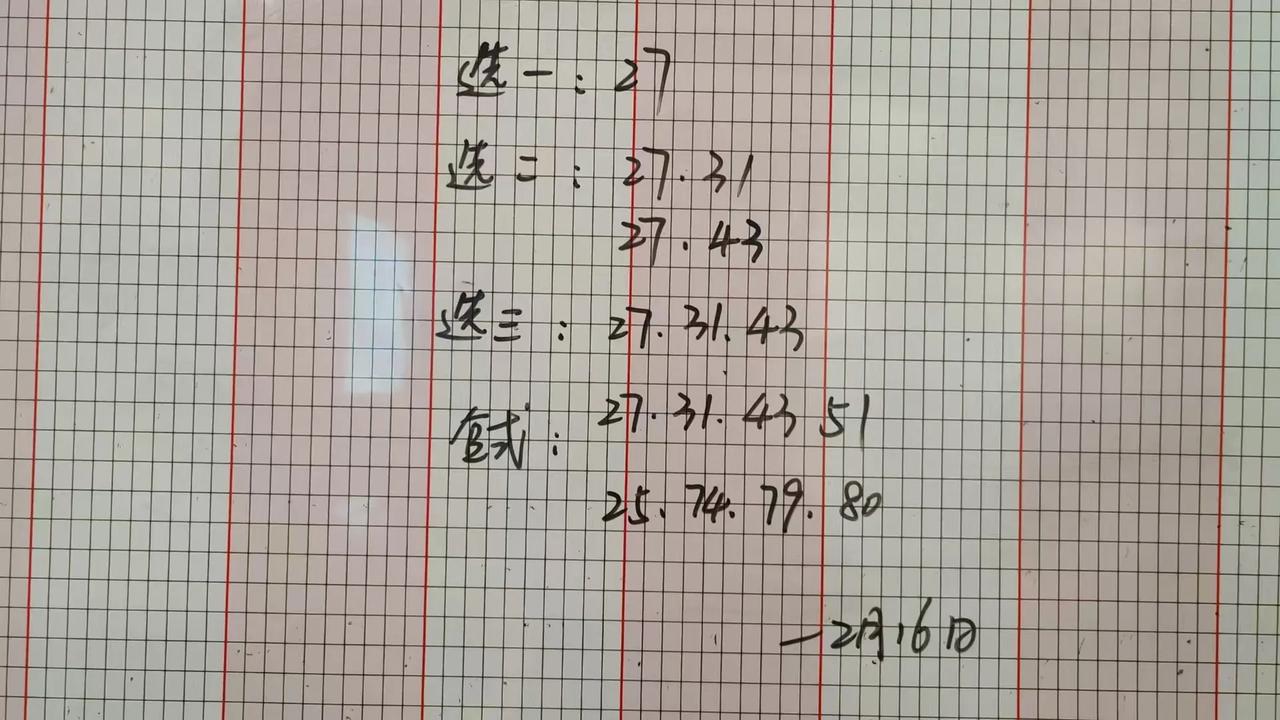 选一：27
选二：27.31
27.43
选三：27.31.43
仓式：27.31.43 51
25.74.79.80
—2月16日